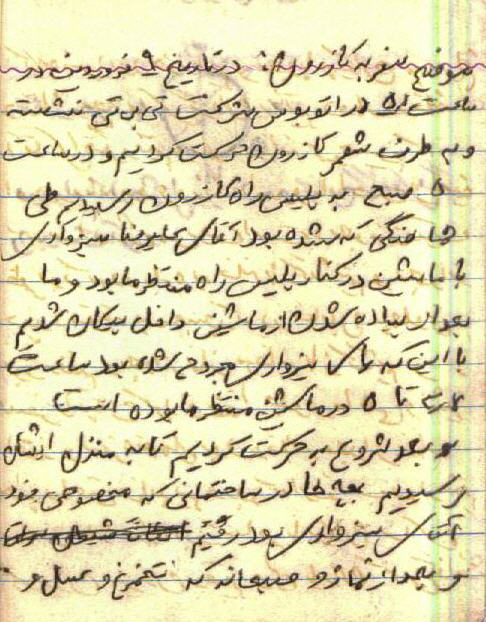 موضوع سفر به کازرون: در تاریخ ۹ فروردین در
ساعت در اتوبوس شرکت تی بی تی نشسته
و به طرف شهر کازرون حرکت کردیم و در ساعت
۵ صبح به پلیس راه کازرون رسیدیم طی
هماهنگی که شده بود آقای علیرضا سبزواری
با ماشین در کنار پلیس راه منتظر ما بود و ما
بعد از پیاده شدن از ماشین داخل پیکان شدیم
با این که سبزواری مجروح شده بود ساعت
تا ۵ در ماشین منتظر ما بوده است
و بعد شروع به حرکت کردیم تا به منزل ایشان
رسیدیم بچه ها در ساختمانی که مخصوص خود
آقای سبزواری بود رفتیم
و بعد از نماز و صبحانه که تخمرغ و عسل و